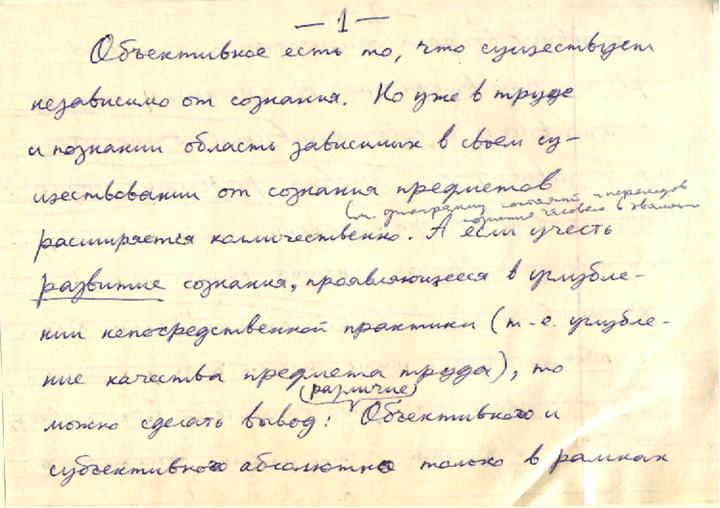 — 1 —
Объективное есть то, что существует
независимо от сознания. Но уже в труде
и познании область зависимых в своем су-
ществовании от сознания предметов
(см диаграмму состояний и переходов
в эволюции
расширяется количественно. А если учесть
развитие сознания, проявляющееся в углубле-
нии непосредственной практики (т.е. углубле-
ние качества предмета труда), то
(различие)
можно сделать вывод: Объективного и
субъективного абсолютно только в рамках